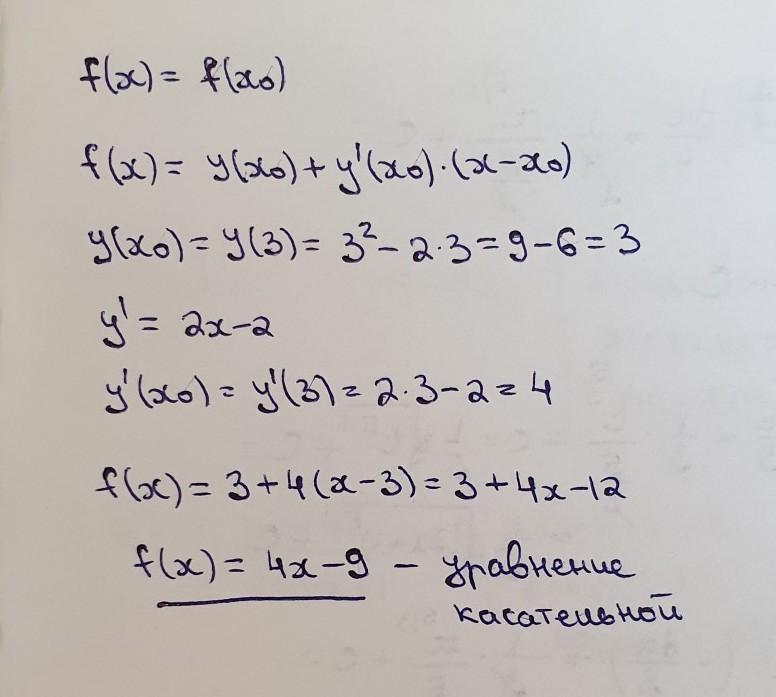 f(x) = f(x₀)
f(x) = y(x₀) + y'(x₀)·(x-x₀)
y(x₀) = y(3) = 3² - 2·3 = 9 - 6 = 3
y' = 2x-2
y'(x₀) = y'(3) = 2·3-2 = 4
f(x) = 3+4(x-3) = 3+4x-12
f(x) = 4x-9 - уравнение
касательной